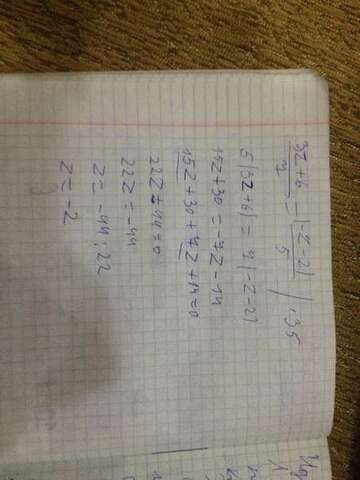 (3z+6)/7 = (-z-2)/5 | ·35
5(3z+6) = 7(-z-2)
15z+30 = -7z-14
15z+30+7z+14=0
22z+44=0
22z=-44
z=-44:22
z=-2